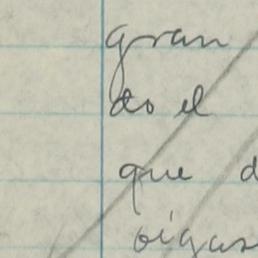 gran
do el
que d
oigas